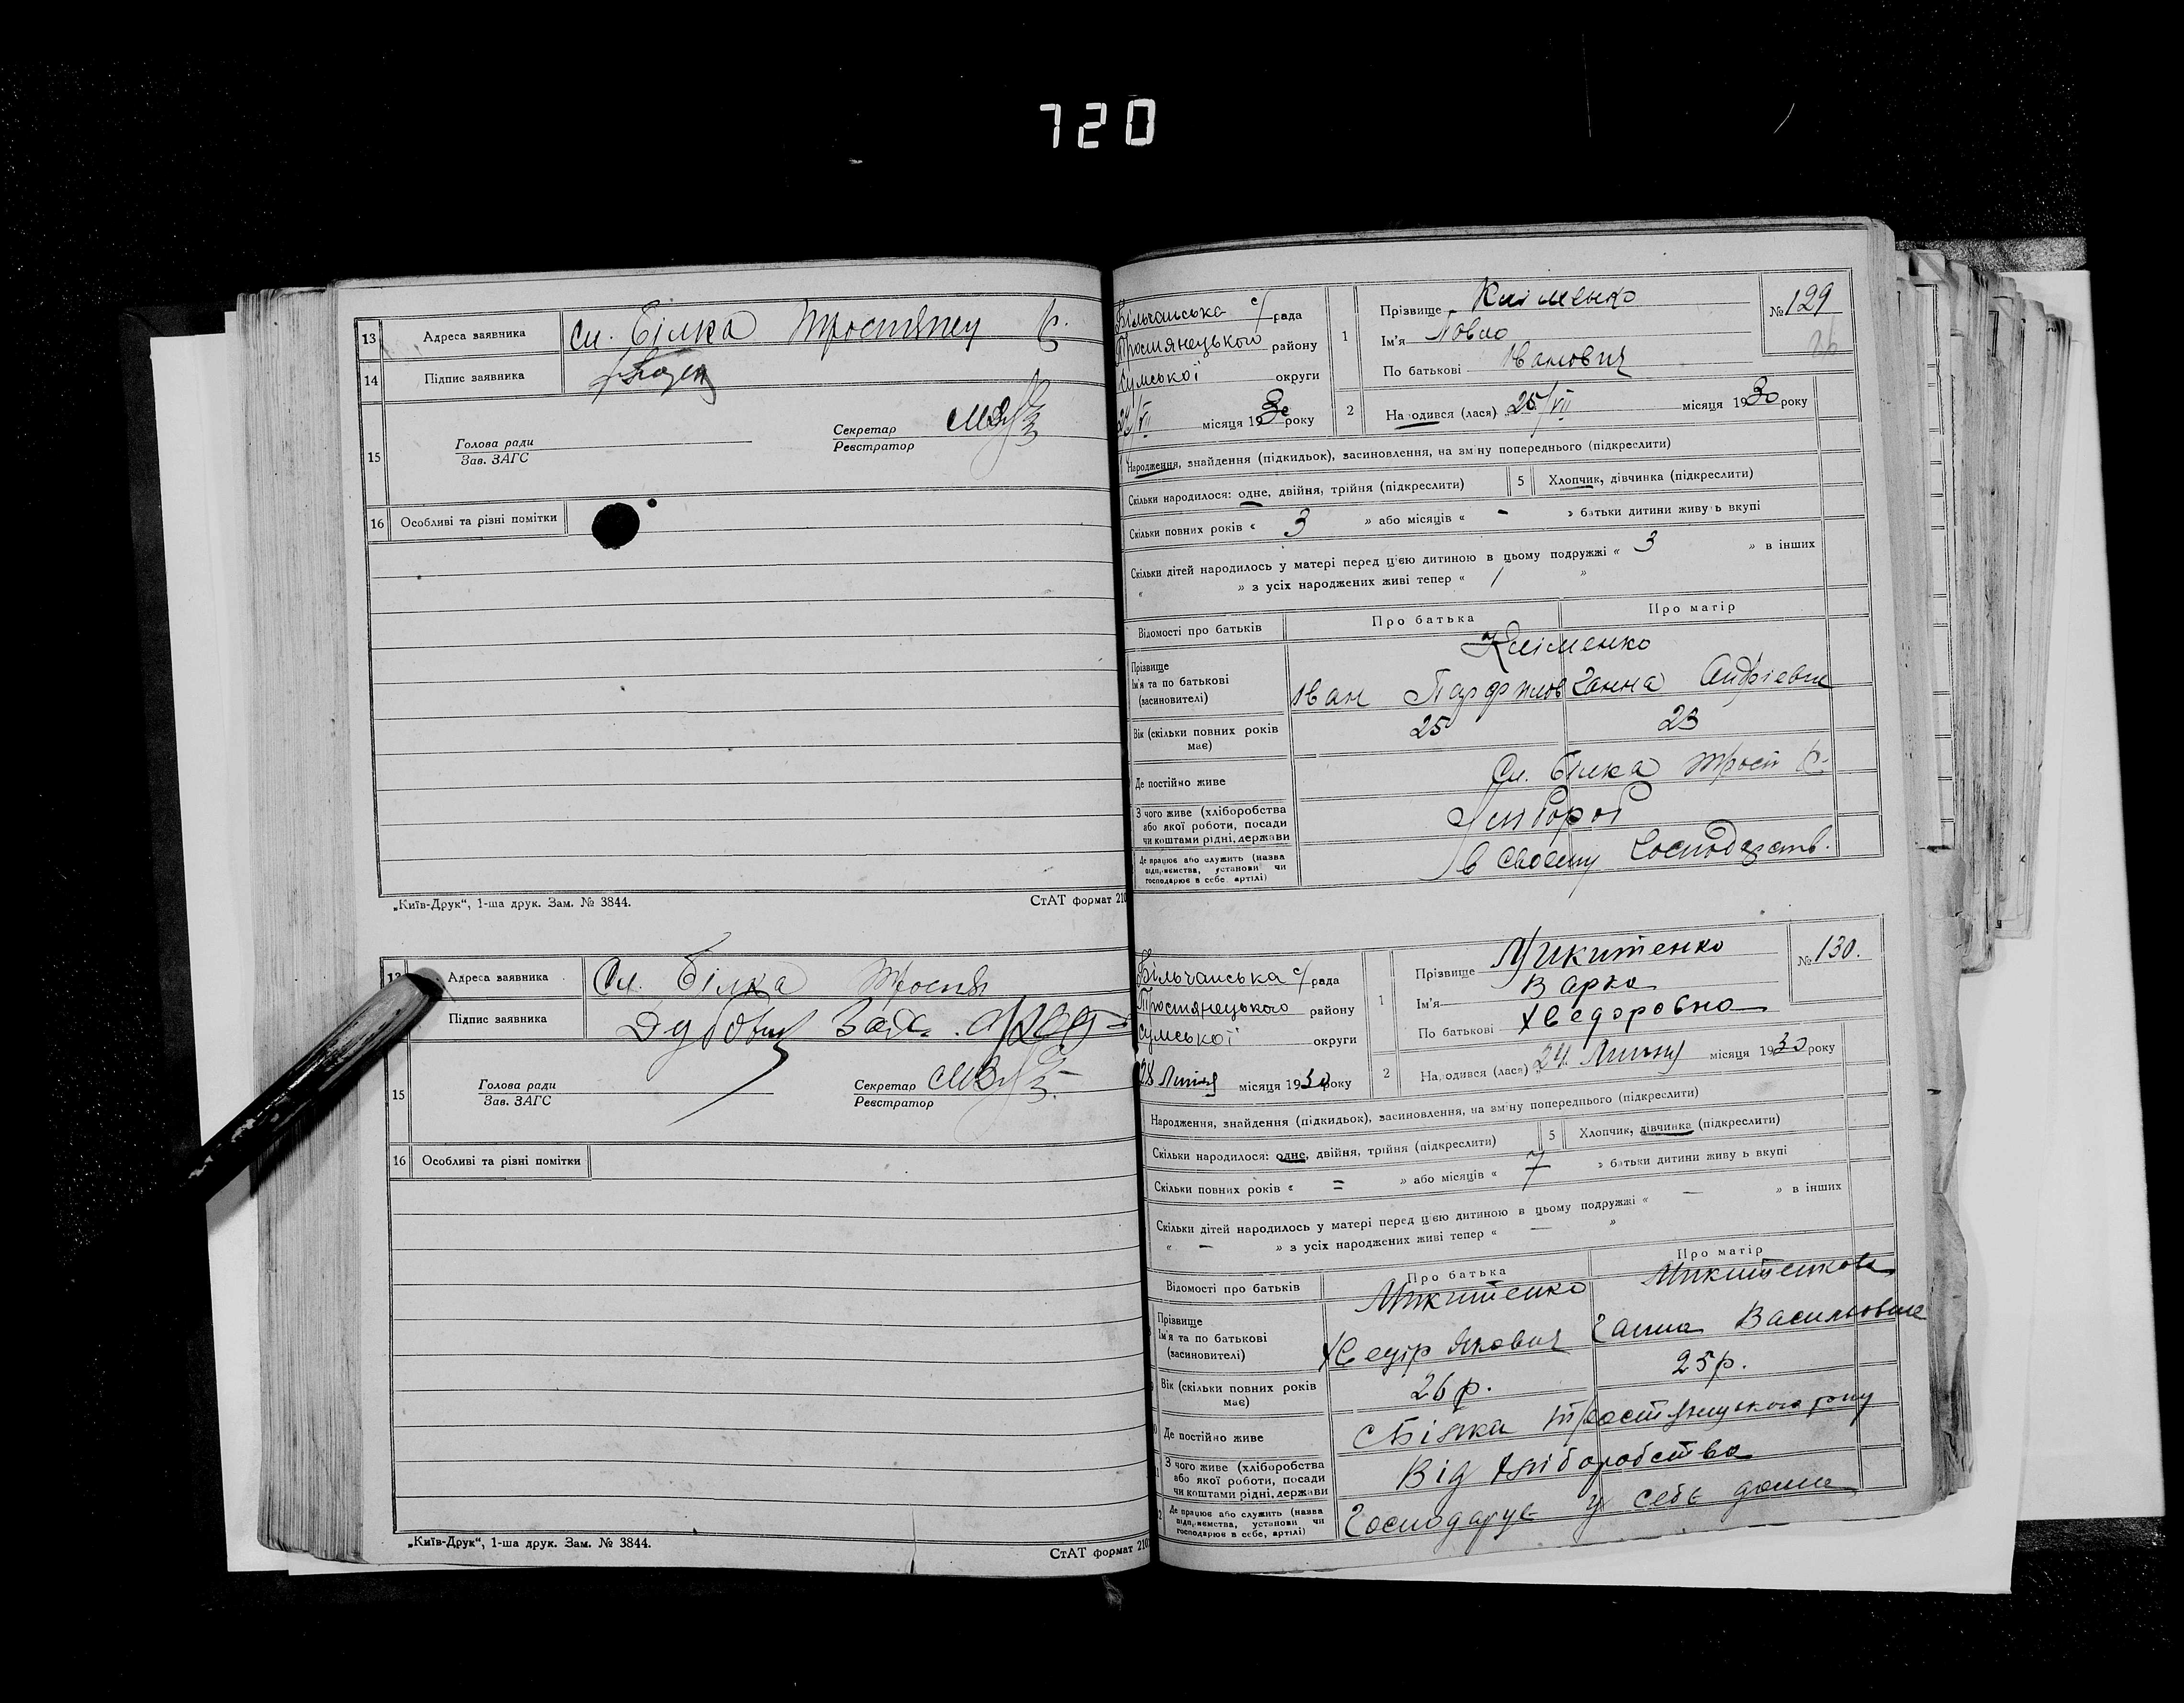 720
13 Адреса заявника сл. Білка Тростянец. Р.
14 Підпис заявника
15 Голова ради
Зав. ЗАГС
Секретар
Реєстратор
16 Особливі та різні помітки
„Київ-Друк“, 1-ша друк. Зам. № 3844.
СтАТ формат 210
Адреса заявника Сл. Білка Тростян
Підпис заявника
15 Голова ради
Зав. ЗАГС
Секретар
Реєстратор
16 Особливі та різні помітки
„Київ-Друк“, 1-ша друк. Зам. № 3844.
СтАТ формат 210
Більчанська с/рада
Тростянецького району
Сумської округи
місяця 1930 року
1 Прізвище Кліменко
Ім'я Павло
По батькові Іванович
№ 129
2 Народився (лася) 25/VII місяця 1930 року
Народження, знайдення (підкидьок), засиновлення, на зміну попереднього (підкреслити)
Скільки народилося: одне, двійня, трійня (підкреслити) 5 Хлопчик, дівчинка (підкреслити)
Скільки повних років « 3 » або місяців « - » батьки дитини живуть вкупі
Скільки дітей народилось у матері перед цією дитиною в цьому подружжі « 3 » в інших
« » з усіх народжених живі тепер « 1 »
Відомості про батьків Про батька Про матір
Прізвище Кліменко
Ім'я та по батькові Іван Ганна Андрієвна
(засиновителі)
Вік (скільки повних років 25 23
має)
Де постійно живе Сл. Білка Трост Р.
З чого живе (хліборобства Хлібороб
або якої роботи, посади
чи коштами рідні, держави
Де працює або служить (назва в своєму господарств.
підприємства, установи чи
господарює в себе, артілі)
Більчанська с/рада
Тростянецького району
Сумської округи
28 Липня місяця 1930 року
1 Прізвище Микитенко
Ім'я Варка
По батькові Хведоровна
№ 130.
2 Народився (лася) 24 Липня місяця 1930 року
Народження, знайдення (підкидьок), засиновлення, на зміну попереднього (підкреслити)
Скільки народилося: одне, двійня, трійня (підкреслити) 5 Хлопчик, дівчинка (підкреслити)
Скільки повних років « = » або місяців « 7 » батьки дитини живуть вкупі
Скільки дітей народилось у матері перед цією дитиною в цьому подружжі « — » в інших
« — » з усіх народжених живі тепер « — »
Відомості про батьків Про батька Про матір
Прізвище Микитенко Микитенкова
Ім'я та по батькові Хведір Якович Ганна Васильовна
(засиновителі)
Вік (скільки повних років 26 р. 25 р.
має)
Де постійно живе с Білка Тростянецького р-ну
З чого живе (хліборобства Від хліборобства
або якої роботи, посади
чи коштами рідні, держави
Де працює або служить (назва Господарує у себе дома
підприємства, установи чи
господарює в себе, артілі)